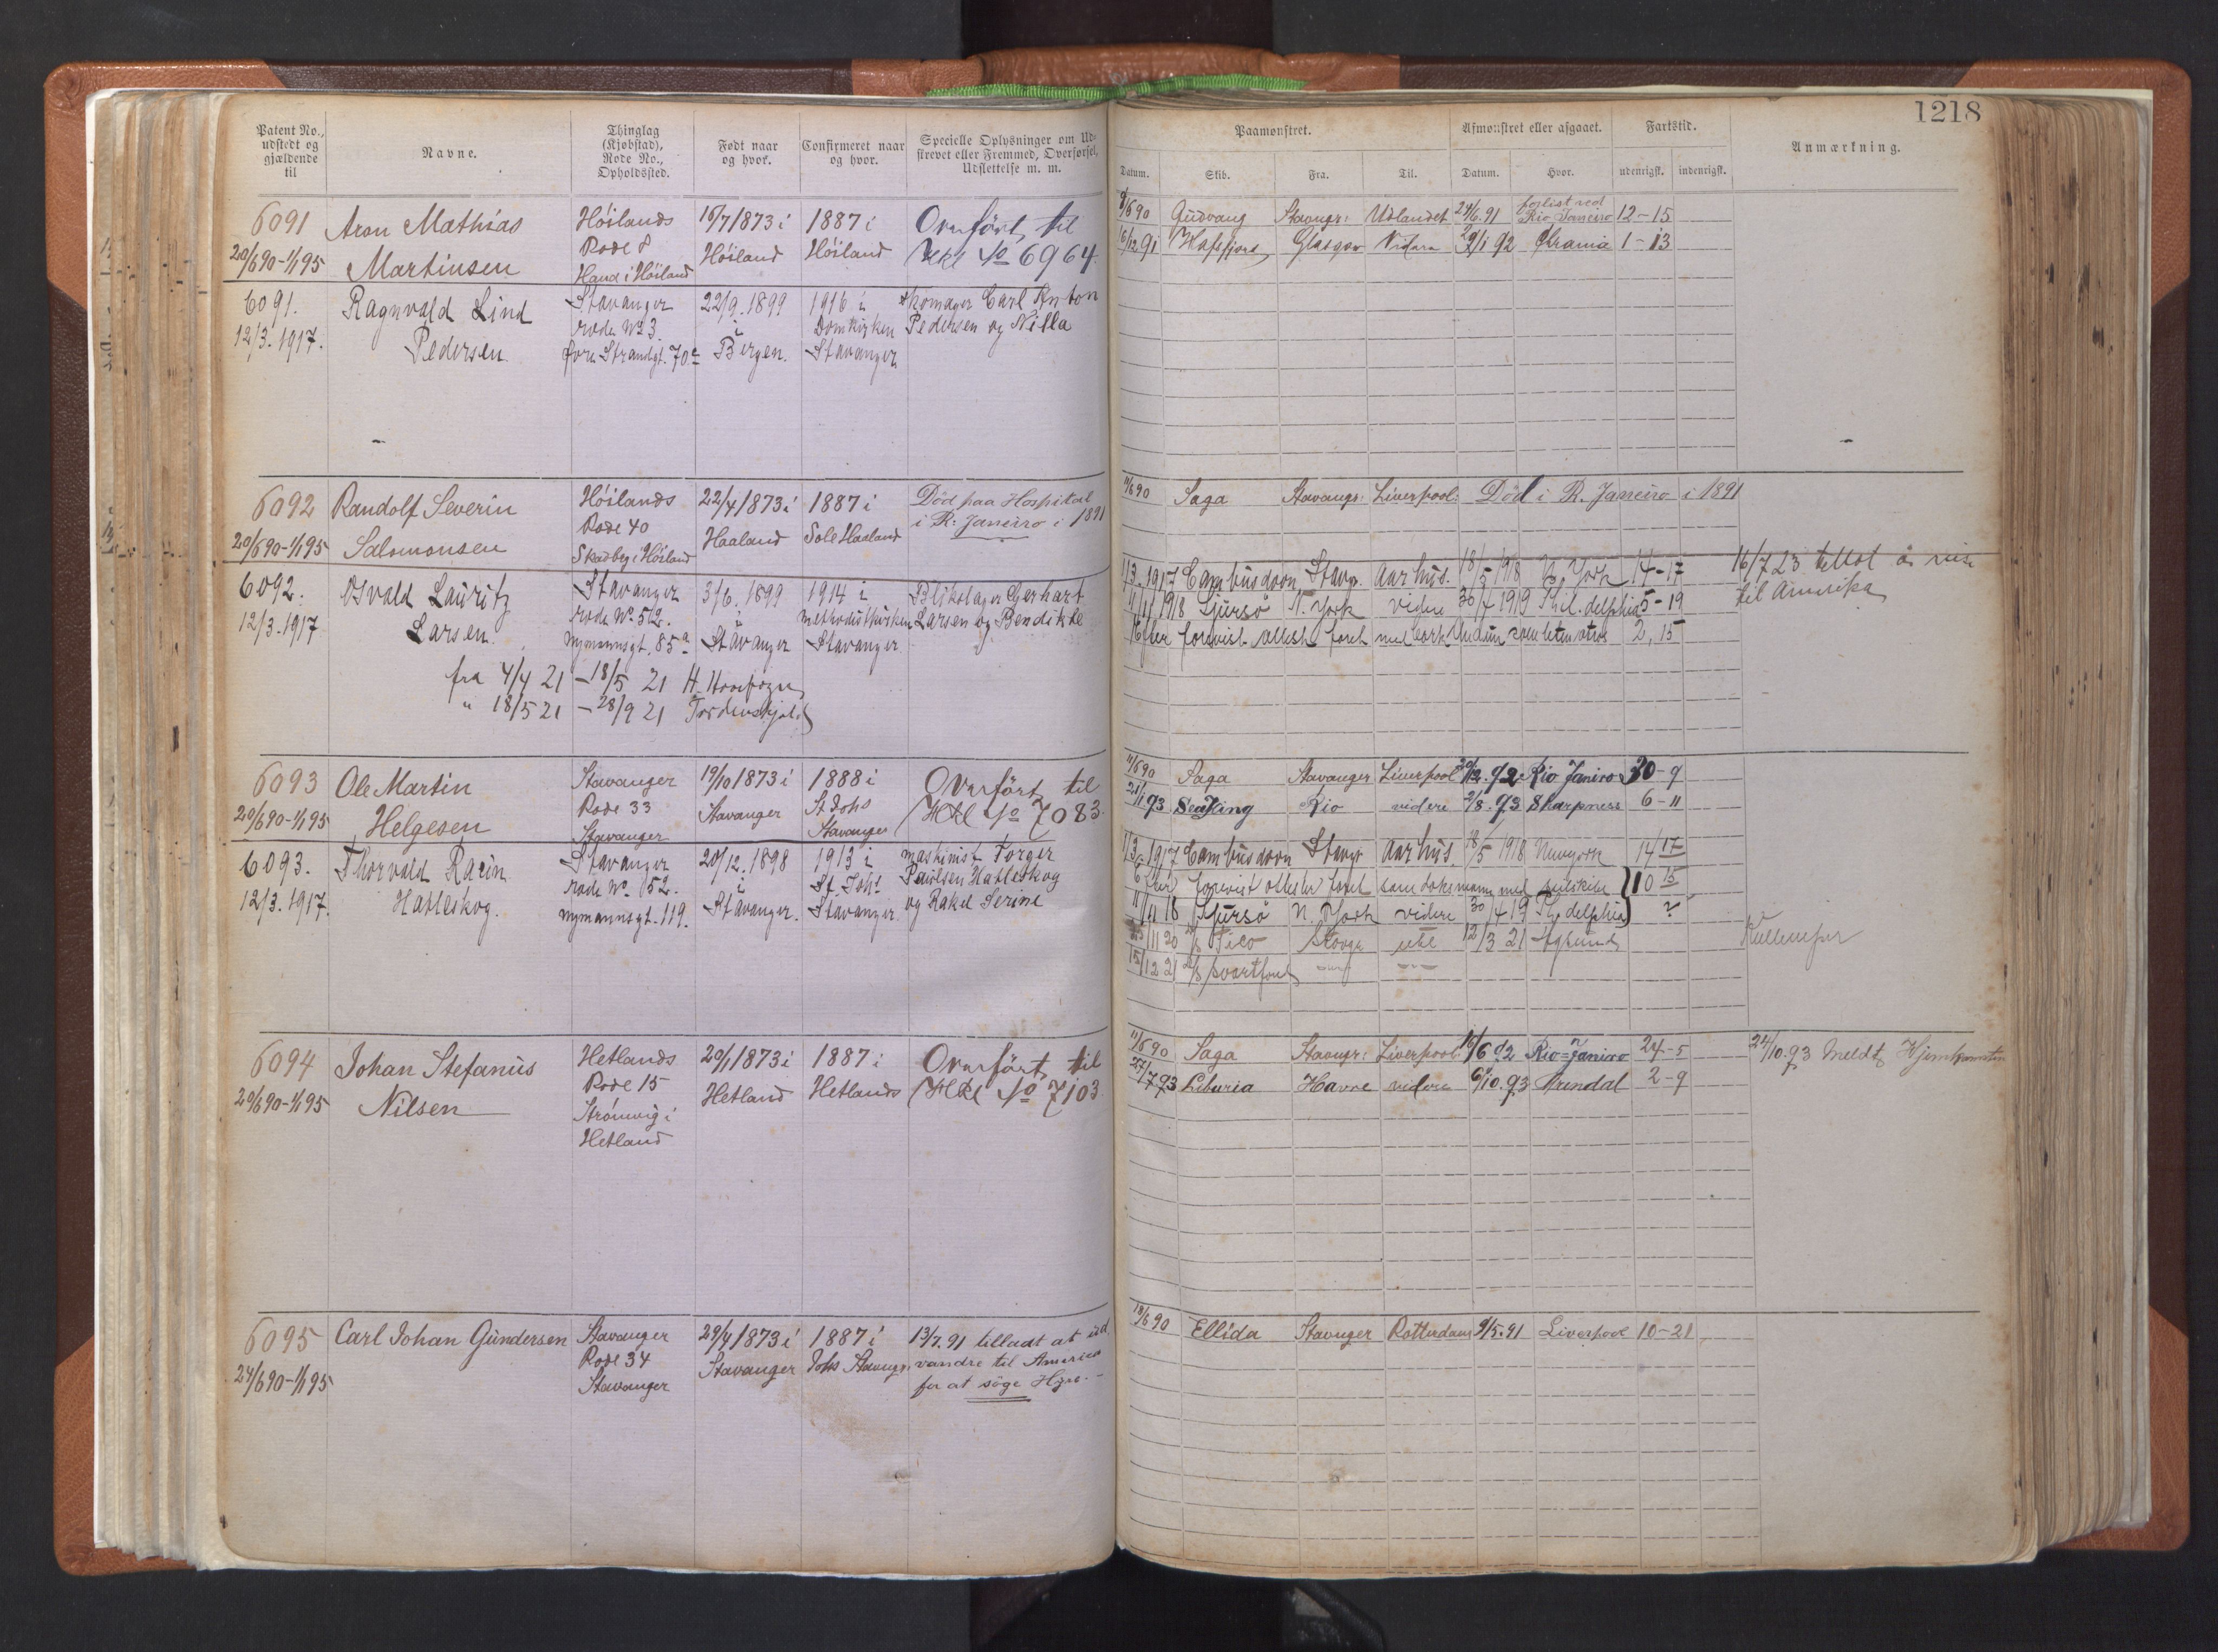 1218
Patent No., udstedt og gjældende til
Navne.
Thinglag (Kjøbstad), Rode No., Opholdssted.
Født naar og hvor.
Confirmeret naar og hvor.
Specielle Oplysninger om Udskrevet eller Fremmed, Overførsel, Udslettelse m. m.
Paamønstret.
Datum. Skib. Fra. Til.
Afmønstret eller afgaaet.
Datum. Hvor.
Fartstid.
udenrigsk. indenrigsk.
Anmærkning.
6091
20/6 90-1/1 95
Aron Mathias
Martinsen
Höilands
Rode 8
Haud i Höiland
16/7 1873 i
Höiland
1887 i
Höiland
Overfört til
Hkl No 6964
Gudvang Stavangr: Udlandet 24/6.91 forlist ved Rio Janeiro 12-15
16/12 91 Hafsfjord Glasgow Videre 29/1 92 Krania 1-13
6091.
12/3.1917.
Ragnvald Lind
Pedersen
Stavanger
rode No 3.
Strandgt. 70
22/9.1899
i
Bergen.
1916 i
Domkirken
Stavanger
skomager Carl Anton
Pedersen og Nilla
6092
20/6 90-1/1 95
Randolf Severin
Salomonsen
Höilands
Rode 40
Skadberg i Höiland
22/4 1873 i
Haaland
1887 i
Sole Haaland
Död paa Hospital
i R. Janeiro i 1891
11/6 90 Saga Stavangr: Liverpool: Död i R. Janeiro i 1891
6092.
12/3.1917
Osvald Lauritz
Larsen.
Stavanger
rode No 52.
nymannsgt. 85a
3/6.1899
i
Stavanger
1914 i
methodistkirken
Stavanger
Blikslager Gerhart
Larsen og Bendikte
fra 4/4 21 - 18/5 21 H. Haarfagre
" 18/5 21 - 28/9 21 Tordenskjold
1/3.1917 Cambusdoon Stavgr. Aarhus. 18/5 1918 N. York 14-17
11/11 1918 Sjursö N. York videre 30/4 1919 Phil.delphia 5-19
2,15
16/7 23 tillat å reise
til Amerika
6093
20/6 90-1/1 95
Ole Martin
Helgesen
Stavanger
Rode 33
Stavanger
19/10 1873 i
Stavanger
1888 i
St Johs
Stavanger
Overfört til
Hkl No 7083.
11/6 90 Saga Stavanger Liverpool 92 Rio Janiro 30-9
93 Sea King Rio videre 2/8.93 Sharpness 6-11
6093.
12/3.1917.
Thorvald Racin
Hatleskog.
Stavanger
rode No 52.
nymannsgt. 119.
20/12.1898
i
Stavanger.
1913 i
St. Johs
Stavanger
maskinist Torger
Paulsen Hatleskog
og Rakel Serine
1/3.1917 Cambusdoon Stavgr Aarhus. 18/5 1918 Newyork 14 17
10 15
11/11 18 Sjursö N. York videre 30/4 19 Ph.delphia
11 20 Stavgr utl 12/3 21
15/12 21
6094
20/6 90-1/1 95
Johan Stefanus
Nilsen
Hetlands
Rode 15
Strömvig i
Hetland
20/1 1873 i
Hetland
1887 i
Hetlands
Overfört til
Hkl No 7103.
11/6 90 Saga Stavngr: Liverpool 16/6 92 Rio-Janiro 24-5
27/7 93 Liburia Havre videre 6/10.93 Arendal 2-9
24/10.93 Meldt Hjemkomsten
6095
24/6 90-1/1 95
Carl Johan Gundersen
Stavanger
Rode 34
Stavanger
29/4 1873 i
Stavanger
1887 i
Johs Stavangr.
13/7.91 tilladt at ud
vandre til America
for at söge Hyre.
18/6 90 Ellida Stavnger Rotterdam 9/5.91 Liverpool 10-21